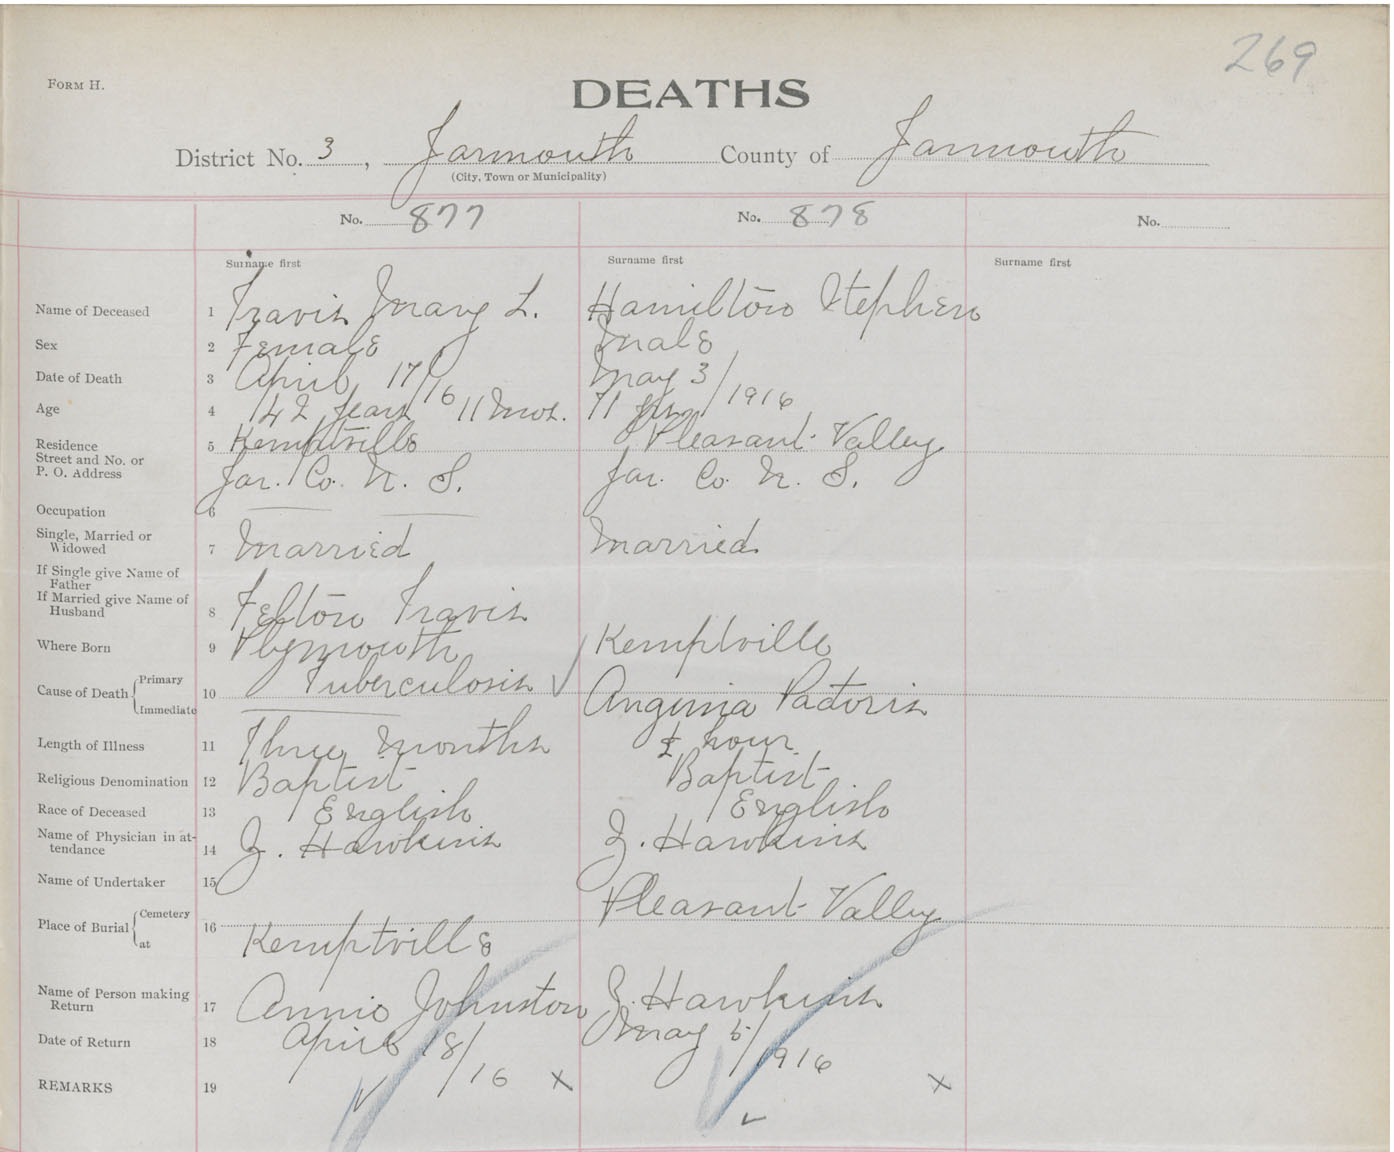 269
FORM H.
DEATHS
District No. 3, Yarmouth County of Yarmouth
(City, Town or Municipality)
No. 877 No. 878 No.
Surname first Surname first Surname first
Name of Deceased 1 Travis Mary L. Hamilton Stephen
Sex 2 Female Male
Date of Death 3 April 17/16 May 3/1916
Age 4 42 years 11 mos. 71 yrs
Residence 5 Kemptville Pleasant Valley
Street and No. or
P. O. Address Yar. Co. N. S. Yar. Co. N. S.
Occupation 6
Single, Married or
Widowed 7 Married Married
If Single give Name of
Father
If Married give Name of
Husband 8 Felton Travis
Where Born 9 Plymouth Kemptville
Cause of Death { Primary 10 Tuberculosis Anginia Pactoris
Immediate
Length of Illness 11 Three months hour
Religious Denomination 12 Baptist Baptist
Race of Deceased 13 English English
Name of Physician in at-
tendance 14 Z. Hawkins Z. Hawkins
Name of Undertaker 15
Place of Burial { Cemetery 16 Pleasant Valley
at Kemptville
Name of Person making
Return 17 Annie Johnston Z. Hawkins
Date of Return 18 April 18/16 May 5/1916
REMARKS 19 x x